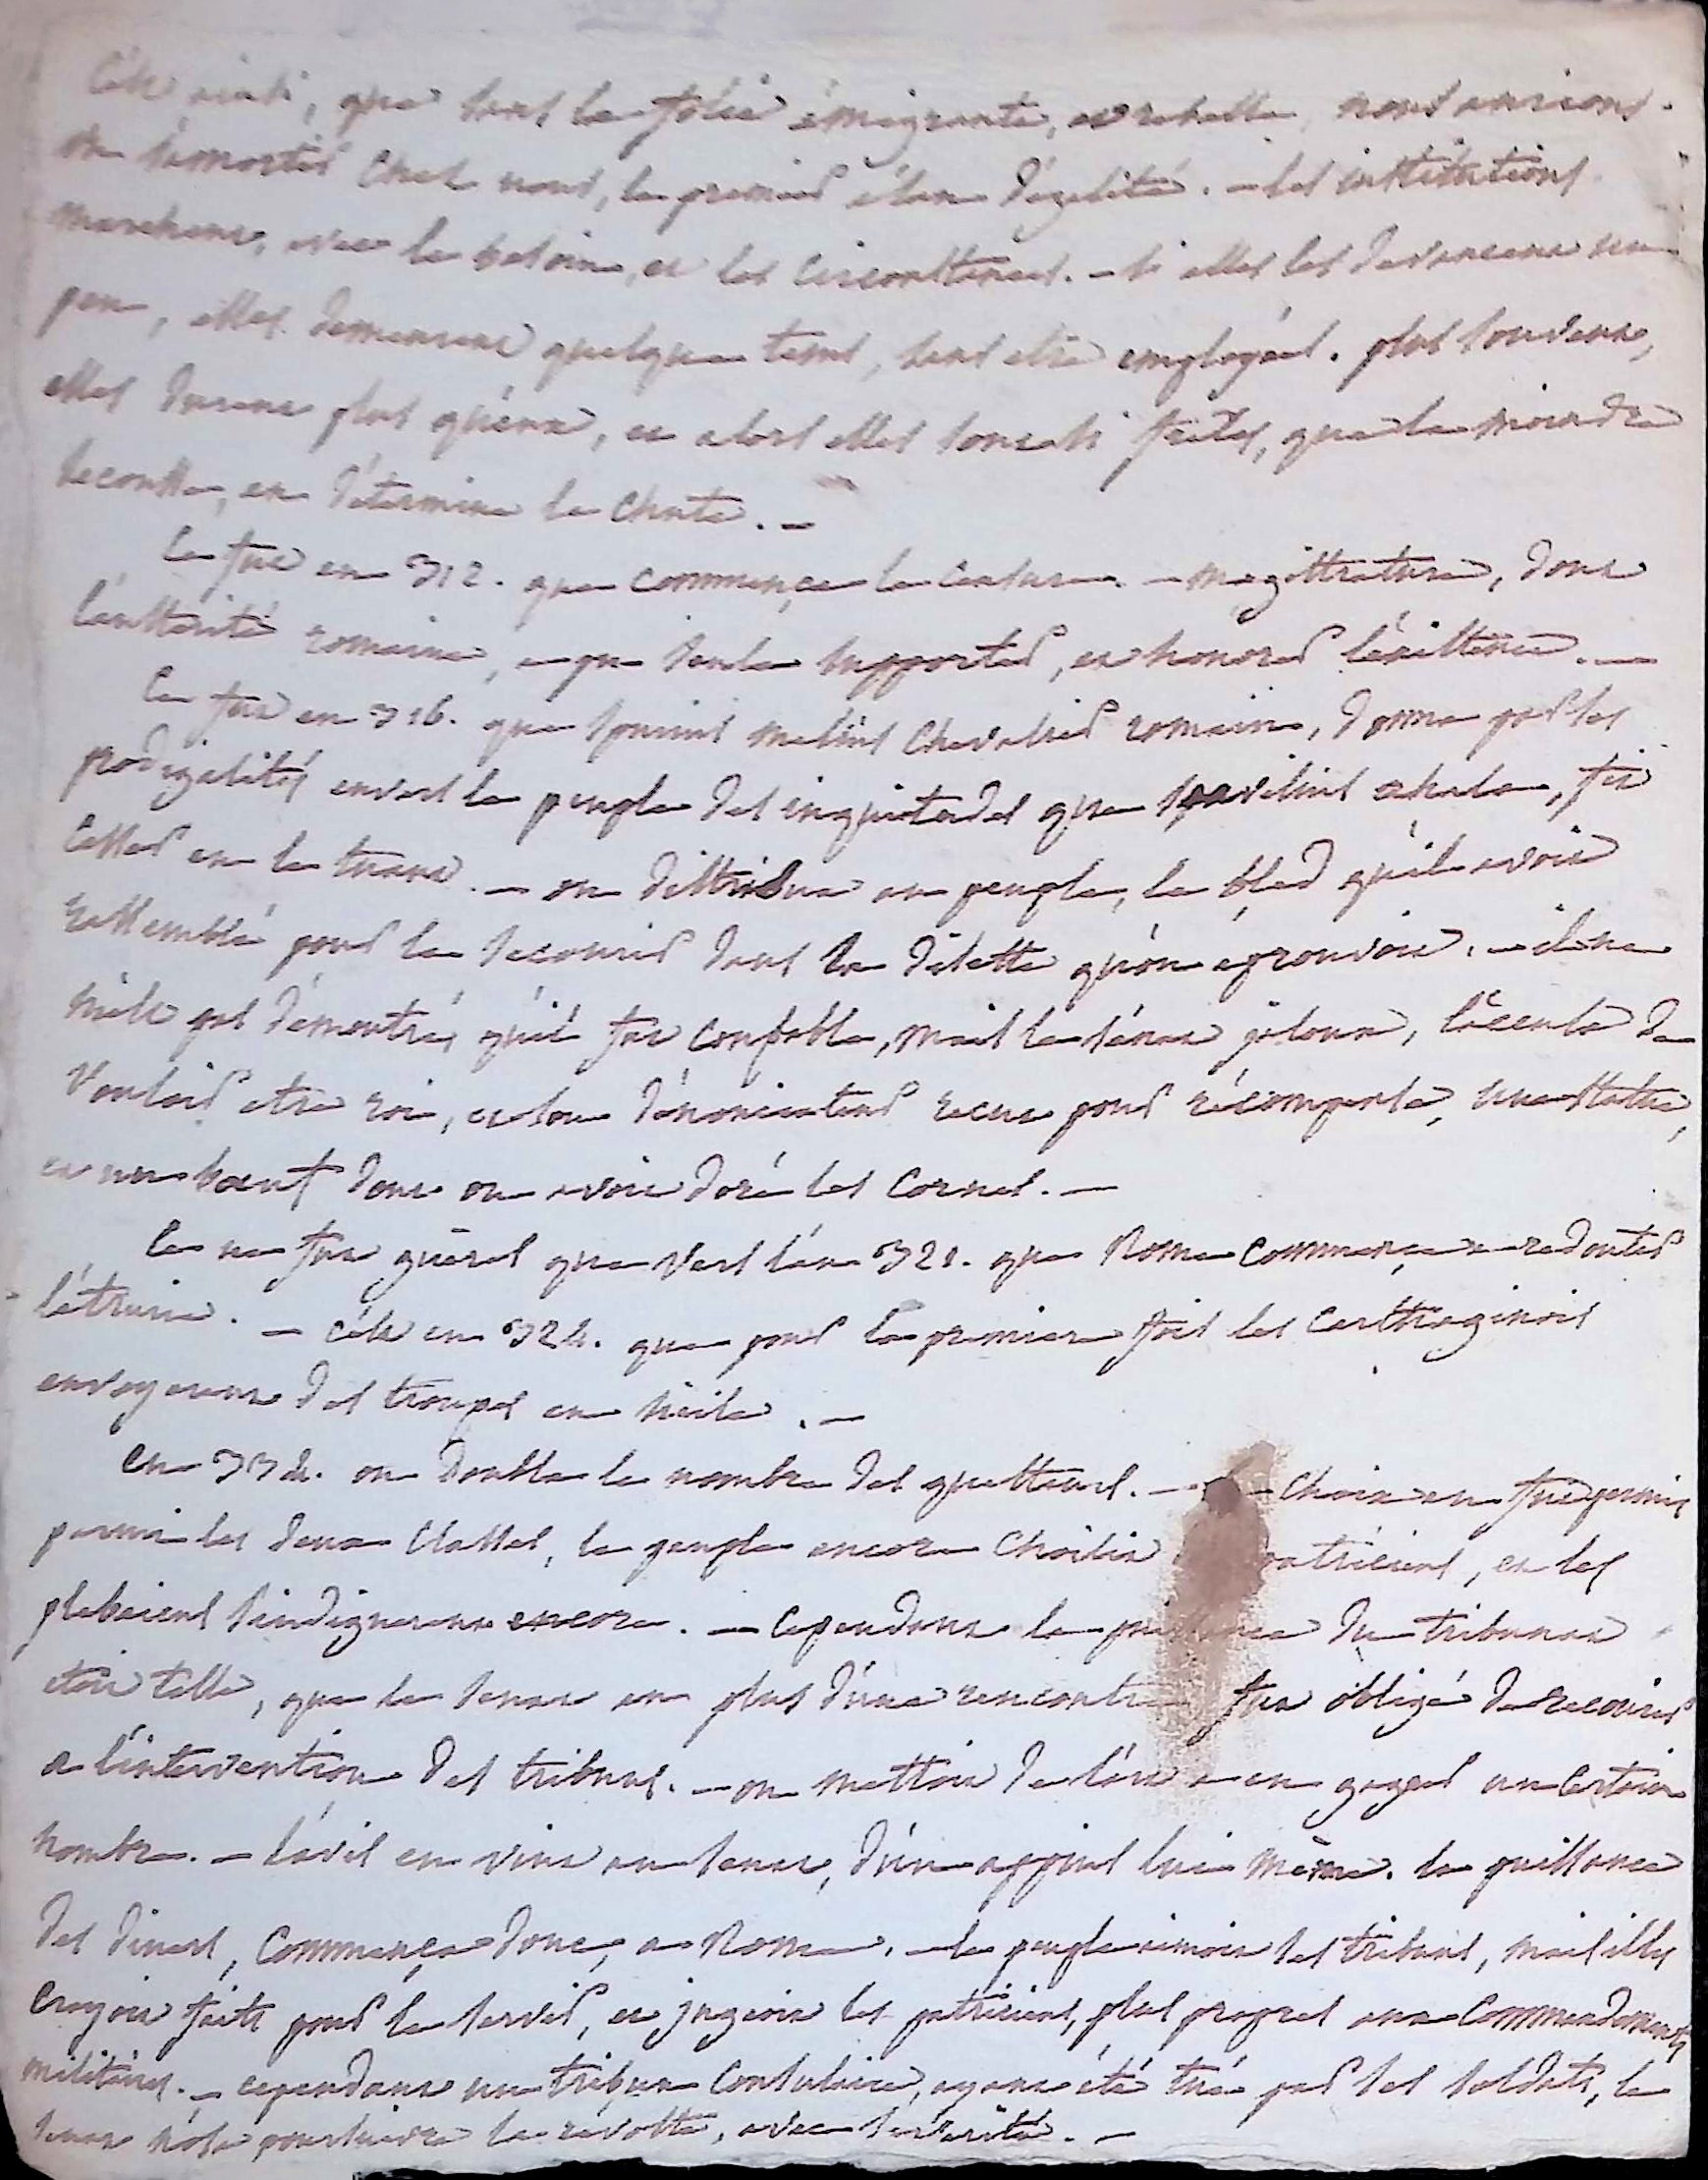 C'est ainsi, que sans la folie émigrante, et rebelle, nous aurions
on amorti chez nous, le premier élan d'égalité. – les institutions
marchent, avec le besoin, et les circonstances. – si elles les devancent un
peu, elles demeurent quelque tems, sans etre employées. plus souvent,
elles durent plus qu'eux, et alors elles sont si frêles, que la moindre
secousse, en détermine la chute. –
Ce fut en 312. que commença la censure. – magistrature, dont
l'austérité romaine, a pu seule supporter, et honorer l'existence. –
Ce fut en 316. que spurius melius chevalier romain, donna par ses
prodigalités envers le peuple des inquietudes que servilius ahala, fit
cesser en le tuant. – on distribua au peuple, le bled qu'il avoit
rassemblé pour le secourir dans la disette qu'on eprouvoit. – il ne
m'est pas démontré, qu'il fut coupable, mais le sénat jaloux, l'accusa de
vouloir etre roi, et son dénonciateur recut pour récompense, une statue,
et un boeuf dont on avoit doré les cornes. –
Ce ne fut guères que vers l'an 321. que Rome commença a redouter
l'étrurie. – c'est en 324. que pour la premiere fois les Carthaginois
envoyerent des troupes en sicile. –
en 334. on doubla le nombre des questeurs. – choix en fut permis
parmi les deux classes, le peuple encore choisit patriciens, et les
plebeiens s'indignerent encore. – cependant la puissance du tribunat
etoit telle, que le senat en plus d'une rencontre fut obligé de recourir
a l'intervention des tribuns. – on mettoit de l'art a en gagner un certain
nombre. – l'avis en vint au senat, d'un appius lui même. la puissance
des diners, commença donc, a Rome. – le peuple aimoit ses tribuns, mais il les
croyoit faits pour le servir, et jugeoit les patriciens, plus propres aux commandements
militaires. – cependant un tribun consulaire, ayant été tué par ses soldats, le
senat n'osa poursuivre la revolte, avec severité. –